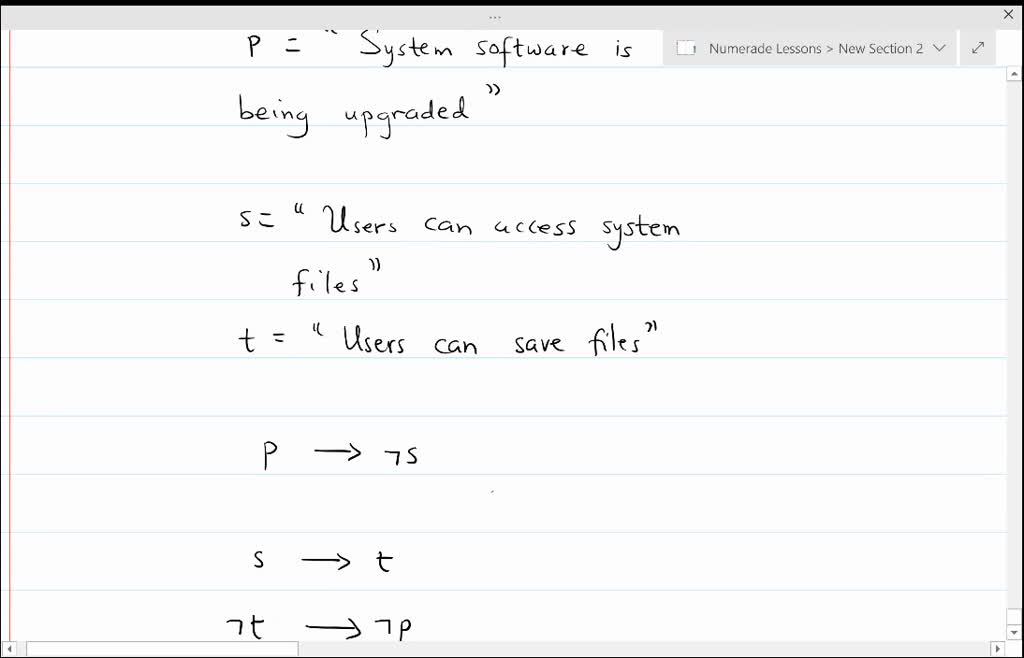 ...
Numerade Lessons > New Section 2
p = " System software is
being upgraded "
s = " Users can access system
files "
t = " Users can save files "
p → ¬s
s → t
¬t → ¬p